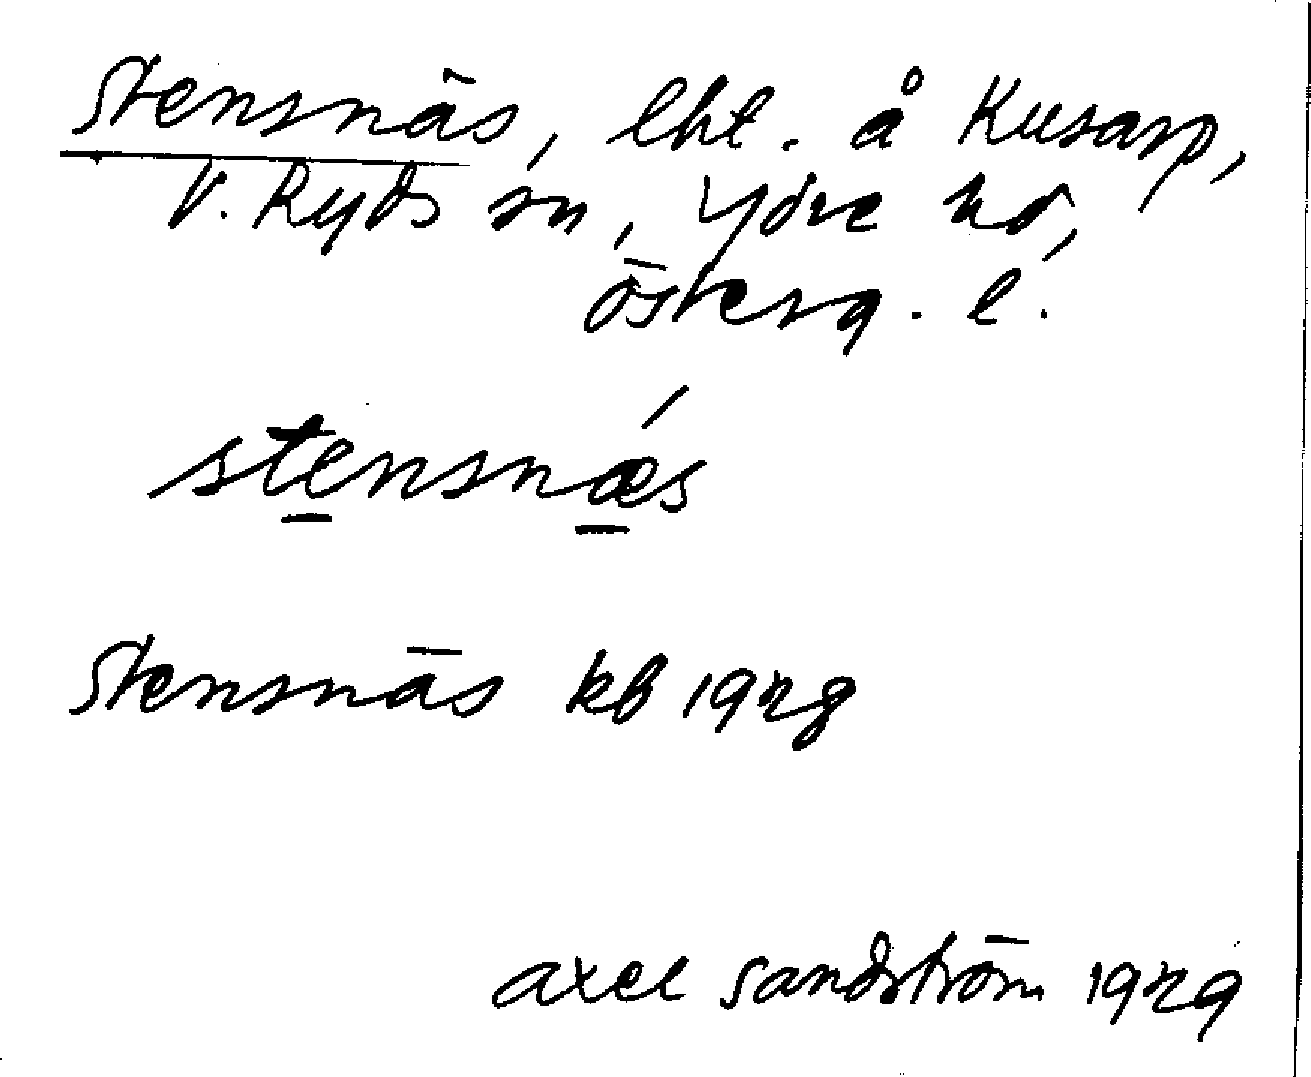 Stensnäs, lht. å Kusarp,
V. Ryds sn, Ydre hd,
Österg. l.
stensnǽs
Stensnäs kb 1928
Axel Sandström 1929